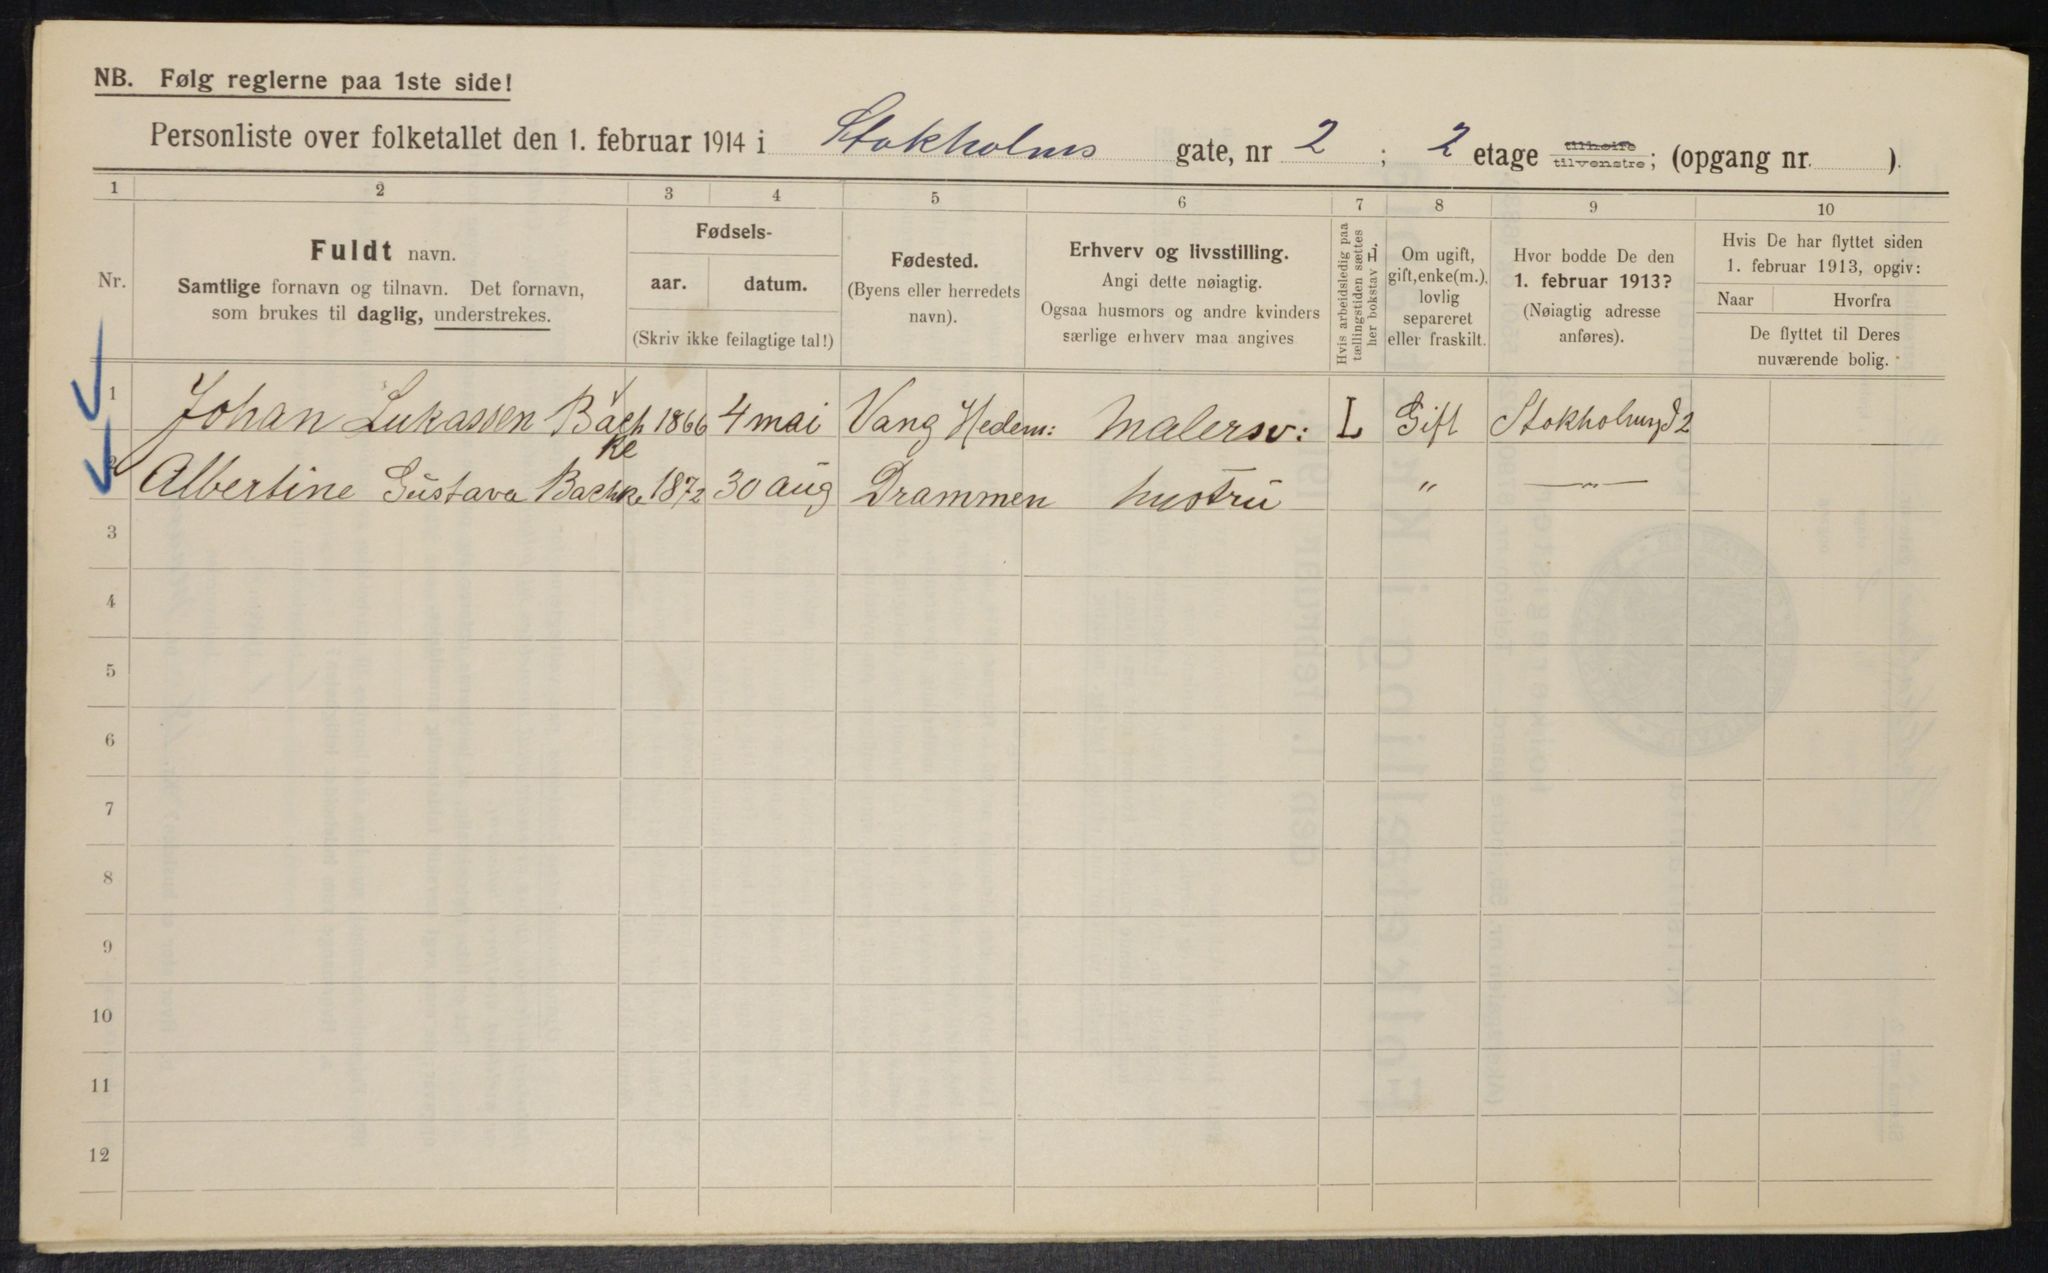 NB. Følg reglerne paa 1ste side!
Personliste over folketallet den 1. februar 1914 i Stokholms gate, nr 2 ; 2 etage tilhøire tilvenstre; (opgang nr. ).
1 2 3 4 5 6 7 8 9 10
Nr.
Fuldt navn.
Samtlige fornavn og tilnavn. Det fornavn,
som brukes til daglig, understrekes.
Fødsels-
aar. datum.
(Skriv ikke feilagtige tal!)
Fødested.
(Byens eller herredets
navn).
Erhverv og livsstilling.
Angi dette nøiagtig.
Ogsaa husmors og andre kvinders
særlige erhverv maa angives
Hvis arbeidsledig paa
tællingstiden sættes
her bokstav L.
Om ugift,
gift, enke(m.),
lovlig
separeret
eller fraskilt.
Hvor bodde De den
1. februar 1913?
(Nøiagtig adresse
anføres).
Hvis De har flyttet siden
1. februar 1913, opgiv:
Naar Hvorfra
De flyttet til Deres
nuværende bolig.
1 Johan Lukassen Bachke 1866 4 mai Vang Hedem: Malersv: L Gift Stokholmsgd 2
2 Albertine Gustava Bachke 1872 30 aug Drammen hustru " —"—
3
4
5
6
7
8
9
10
11
12